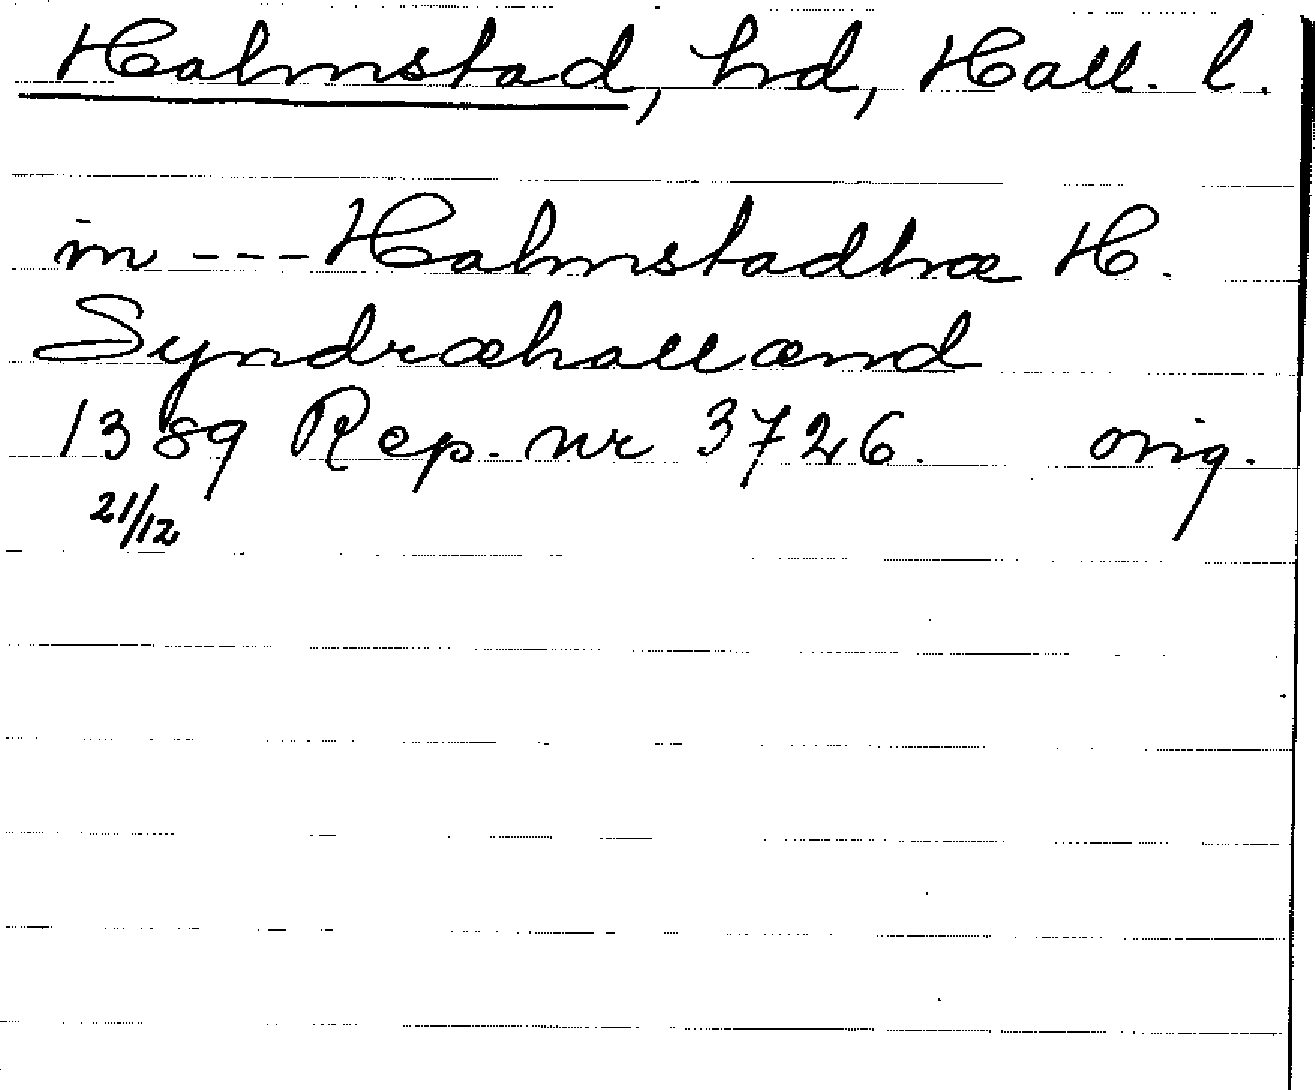 Halmstad, hd, Hall. l.
in --- Halmstadhæ H.
Syndræhallænd
1389 Rep. nr 3726. orig.
21/12